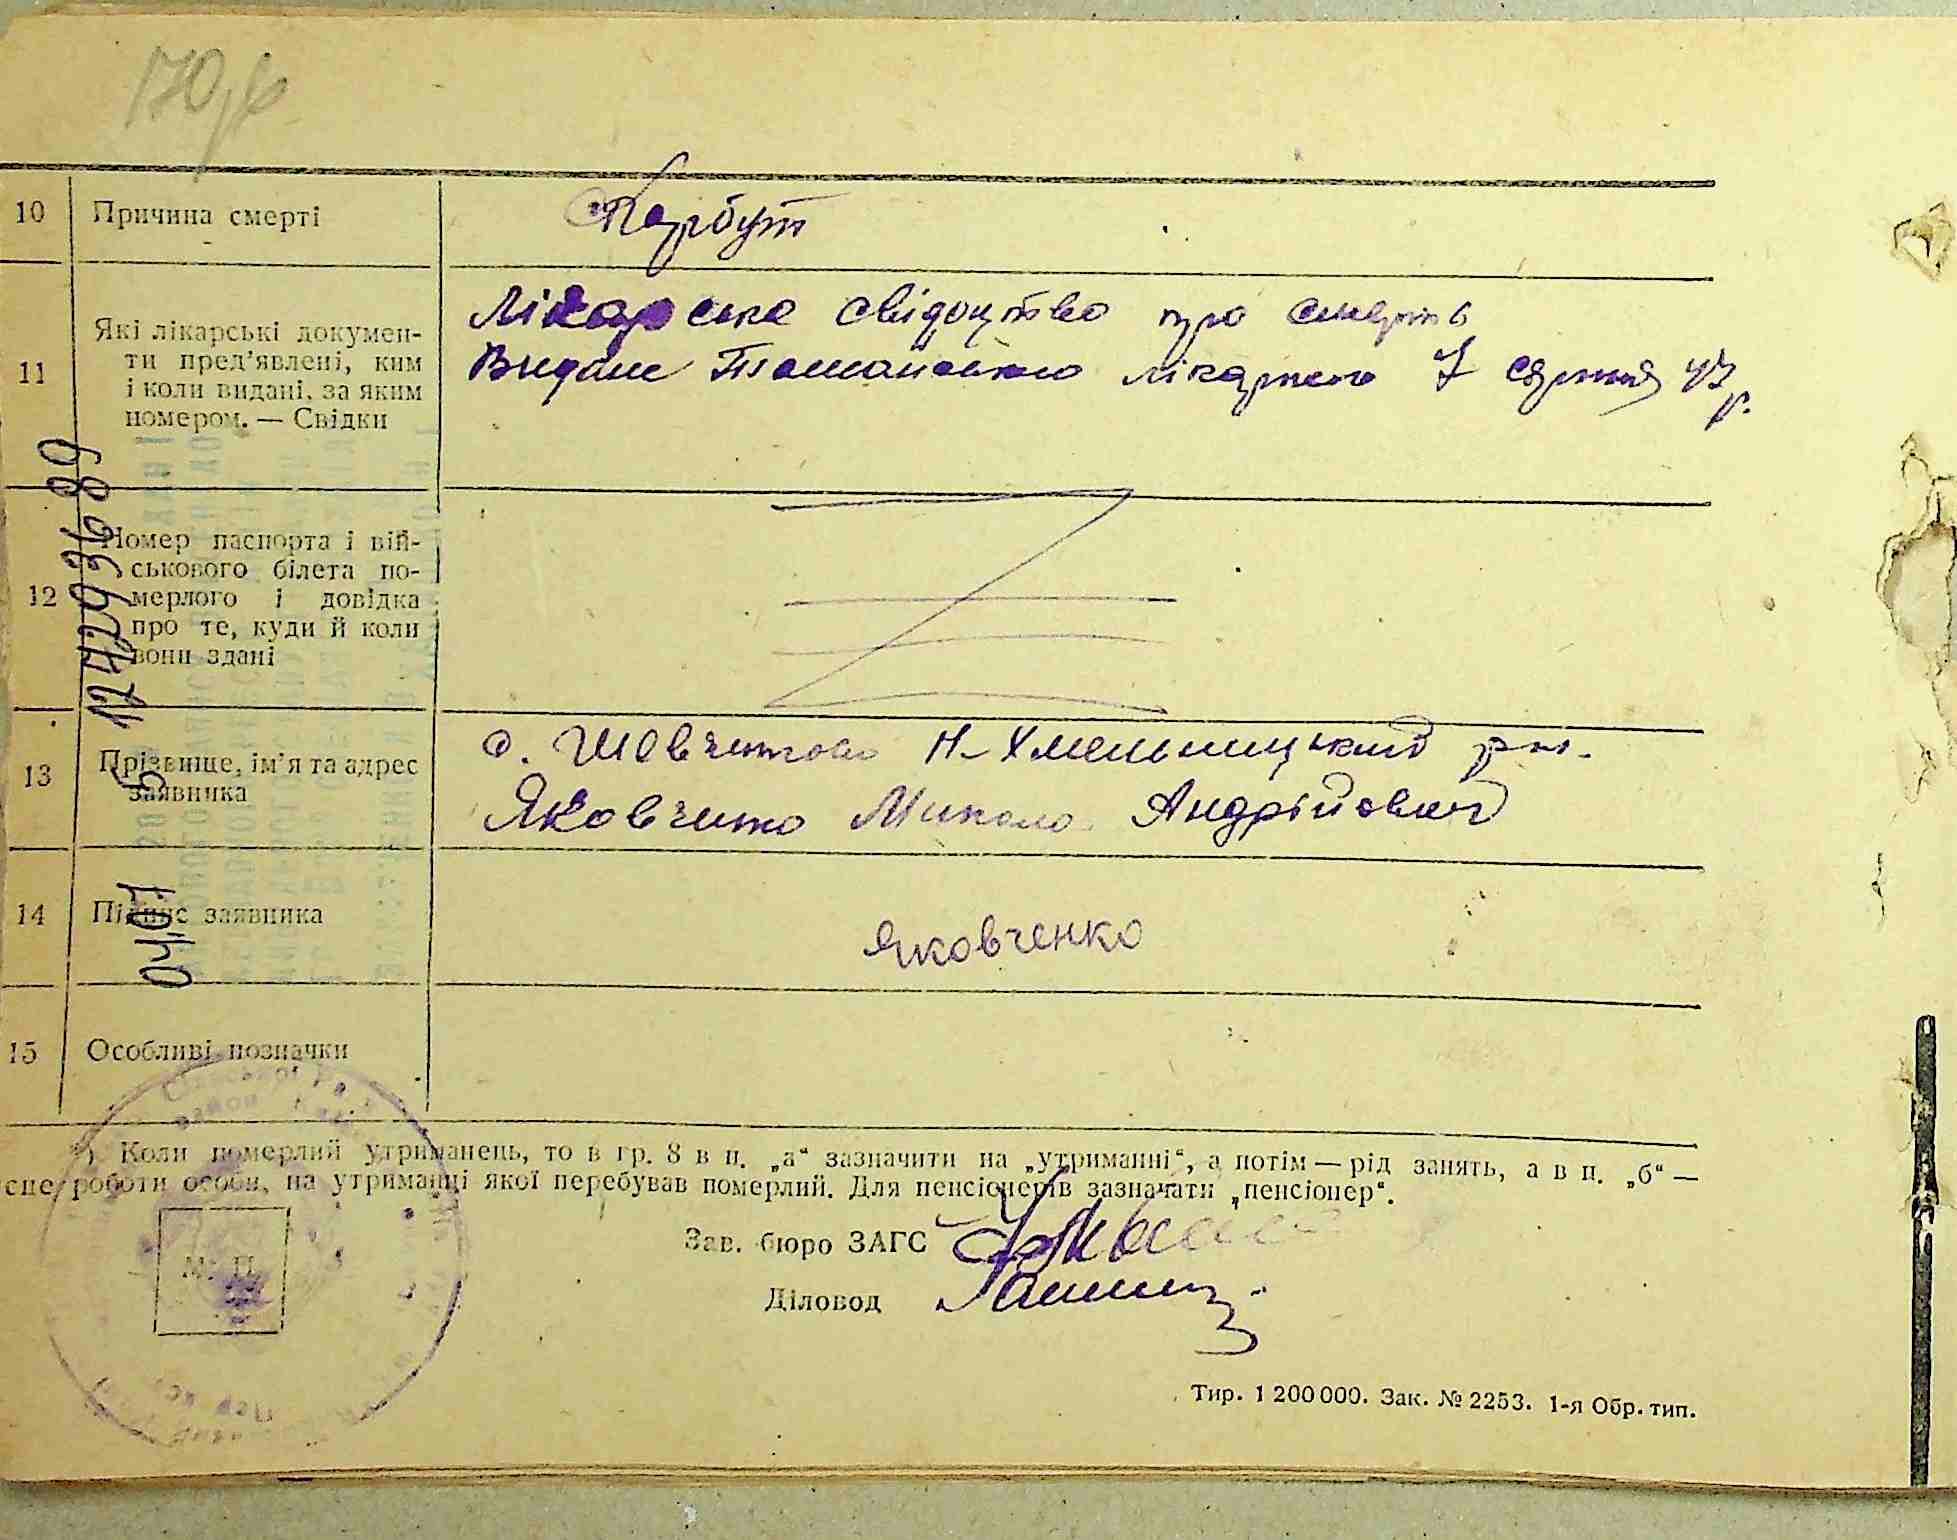 10 Причина смерті
Карбут
11 Які лікарські докумен-
ти пред’явлені, ким
і коли видані, за яким
номером. — Свідки
Лікарське свідоцтво про смерть
Видане лікарнею 7 серпня 47 р.
12 Номер паспорта і вій-
ськового білета по-
мерлого і довідка
про те, куди й коли
вони здані
13 Прізвище, ім’я та адрес
заявника
с. Шевченково Н-Хмельницький р-н.
Яковченко Микола Андрійович
14 Підпис заявника
Яковченко
15 Особливі позначки
*) Коли померлий утриманець, то в гр. 8 в п. „а“ зазначити на „утриманні“, а потім — рід занять, а в п. „б“ —
сце роботи особи, на утриманці якої перебував померлий. Для пенсіонерів зазначати „пенсіонер“.
М. П.
Зав. бюро ЗАГС
Діловод
Тир. 1 200 000. Зак. № 2253. 1-я Обр. тип.